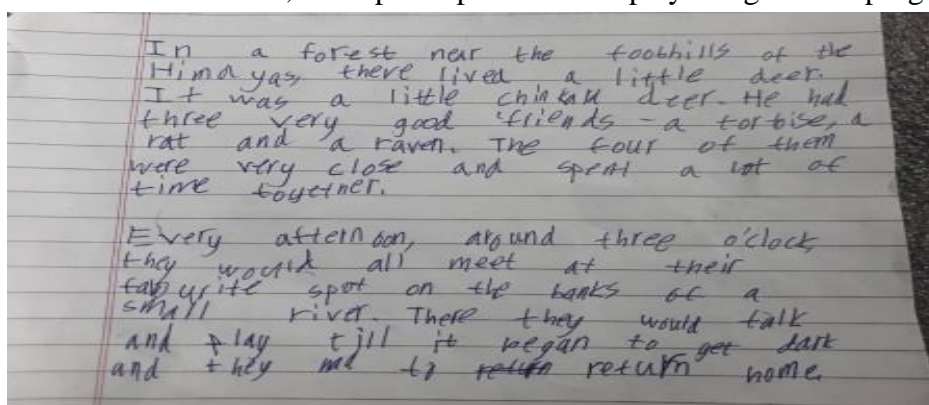 In a forest near the foothills of the
Himalyas, there lived a little deer.
It was a little chinkau deer. He had
three very good friends - a tortise, a
rat and a raven. The four of them
were very close and spent a lot of
time together.
Every afternoon, around three o'clock,
they would all meet at their
favourite spot on the banks of a
small river. There they would talk
and play till it began to get dark
and they had to return home.